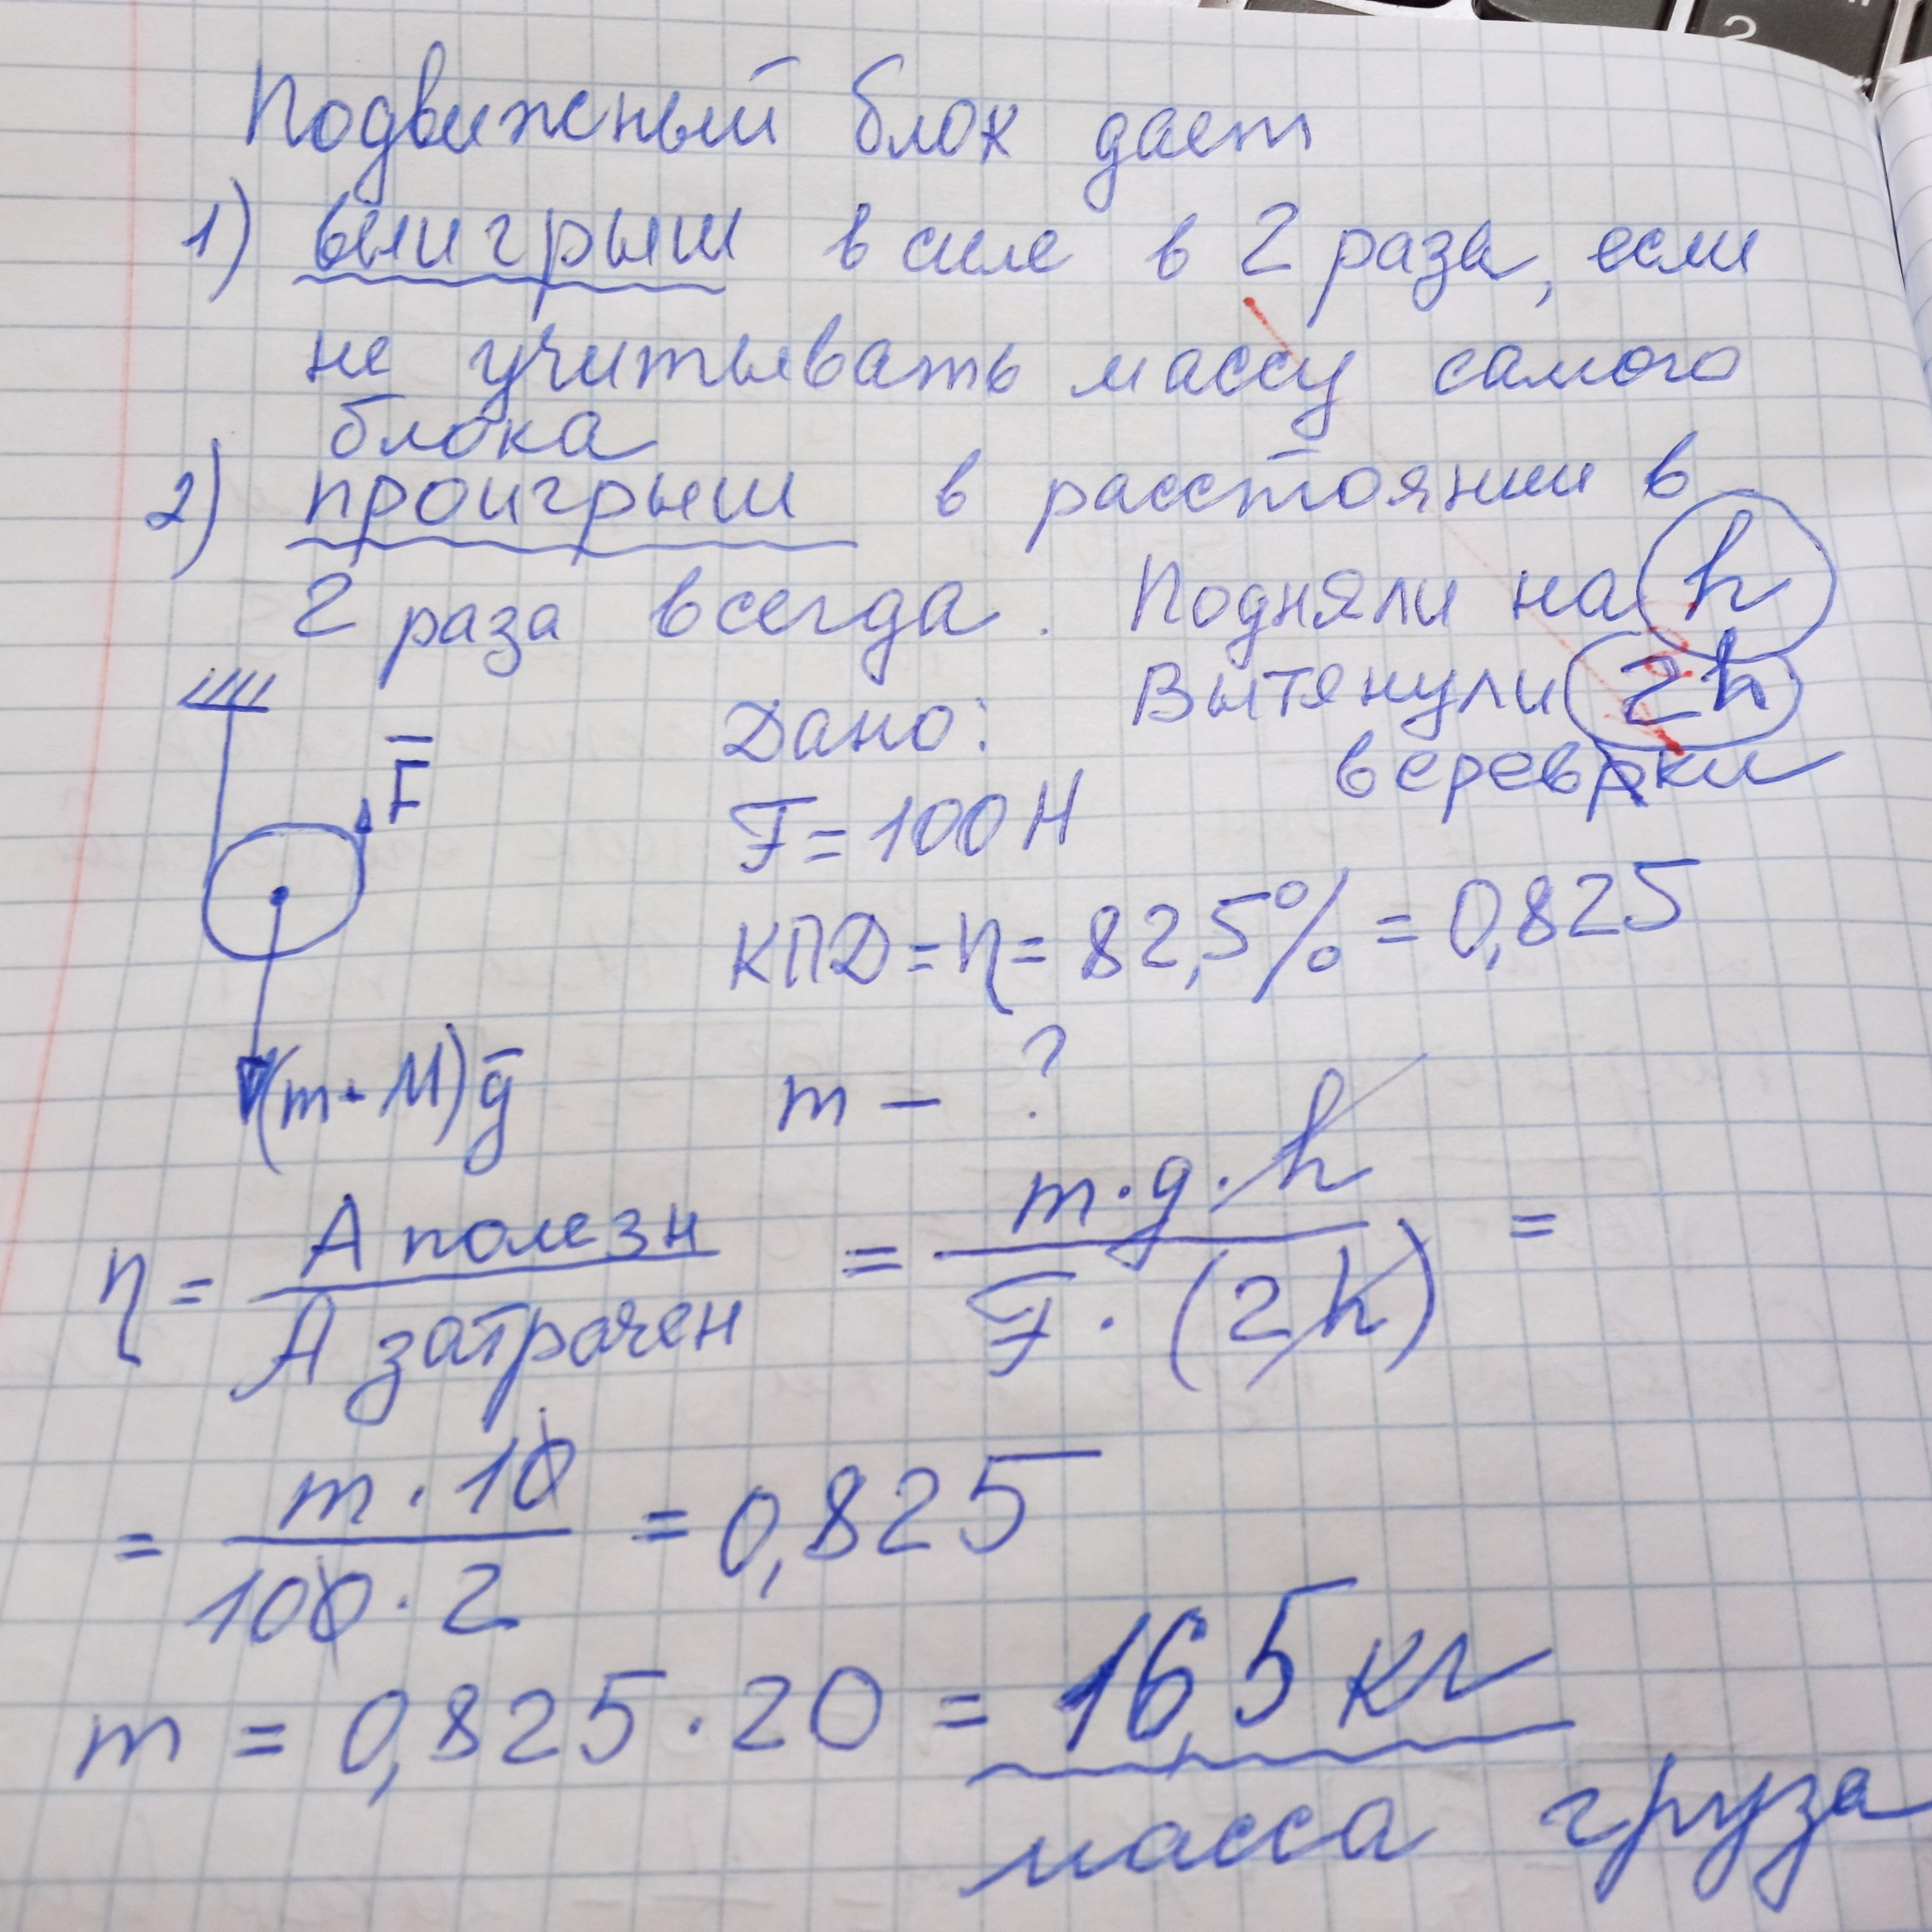 Подвижный блок дает
1) выигрыш в силе в 2 раза, если
не учитывать массу самого
блока
2) проигрыш в расстоянии в
2 раза всегда. Подняли на h
Вытянули 2h
веревки
F
Дано:
F = 100 Н
КПД = η = 82,5% = 0,825
(m + M)g
m – ?
η = A полезн / A затрачен = m·g·h / F·(2h) =
= m·10 / 100·2 = 0,825
m = 0,825·20 = 16,5 кг
масса груза